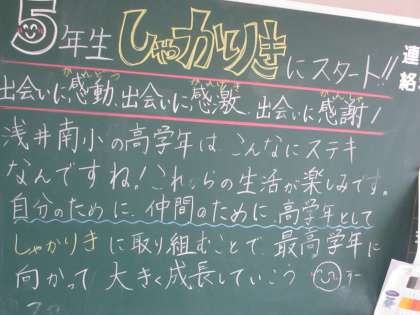 5年生 しゃかりきにスタート!!
出会いに感動、出会いに感激、出会いに感謝!
浅井南小の高学年は こんなにステキ
なんですね!これからの生活が楽しみです。
自分のために、仲間のために、高学年として
しゃかりきに取り組むことで、最高学年に
向かって 大きく成長していこう
連絡